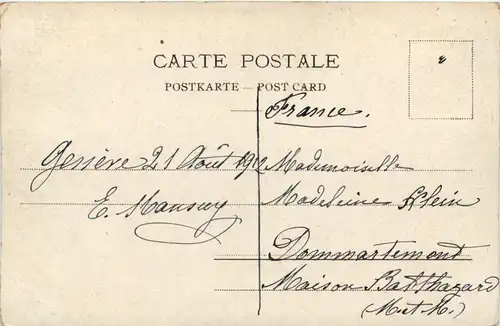 CARTE POSTALE
POSTKARTE — POST CARD
France.
Genève 21 Août 1912
E. Mansuy
Mademoiselle
Madeleine Klein
Dommartemont
Maison Balthazard
(Mt M.)